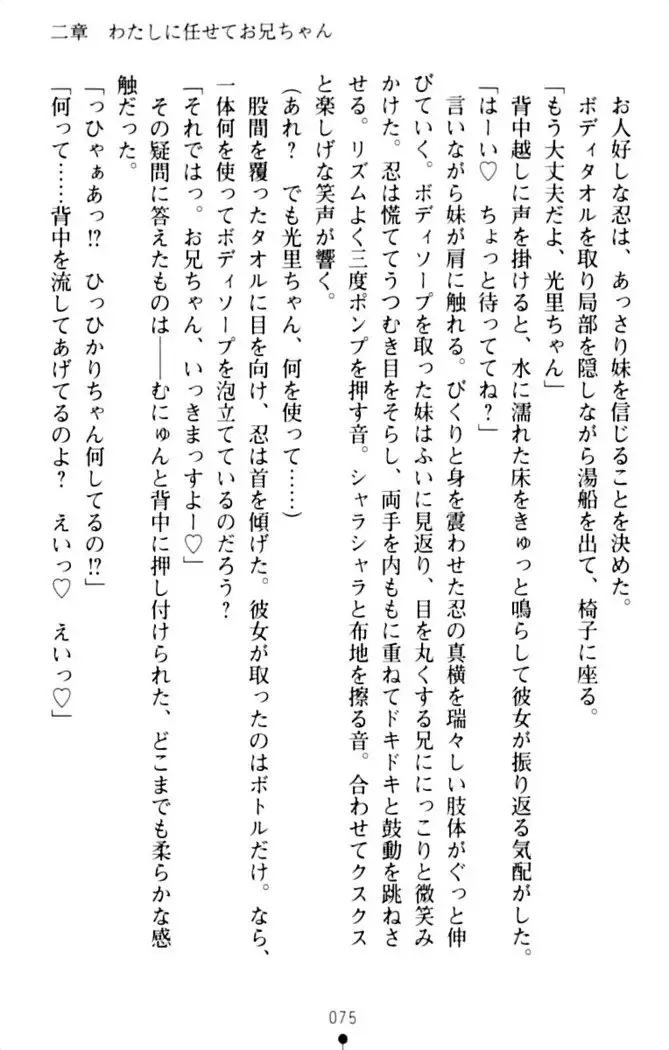 二章　わたしに任せてお兄ちゃん
お人好しな忍は、あっさり妹を信じることを決めた。
ボディタオルを取り局部を隠しながら湯船を出て、椅子に座る。
「もう大丈夫だよ、光里ちゃん」
背中越しに声を掛けると、水に濡れた床をきゅっと鳴らして彼女が振り返る気配がした。
「はーい♡　ちょっと待っててね？」
言いながら妹が肩に触れる。びくりと身を震わせた忍の真横を瑞々しい肢体がぐっと伸
びていく。ボディソープを取った妹はふいに見返り、目を丸くする兄ににっこりと微笑み
かけた。忍は慌ててうつむき目をそらし、両手を内ももに重ねてドキドキと鼓動を跳ねさ
せる。リズムよく三度ポンプを押す音。シャラシャラと布地を擦る音。合わせてクスクス
と楽しげな笑声が響く。
(あれ？　でも光里ちゃん、何を使って……)
股間を覆ったタオルに目を向け、忍は首を傾げた。彼女が取ったのはボトルだけ。なら、
一体何を使ってボディソープを泡立てているのだろう？
「それではっ。お兄ちゃん、いっきまっすよー♡」
その疑問に答えたものは――むにゅんと背中に押し付けられた、どこまでも柔らかな感
触だった。
「っひゃぁあっ!?　ひっひかりちゃん何してるの!?」
「何って……背中を流してあげてるのよ？　えいっ♡　えいっ♡」
075